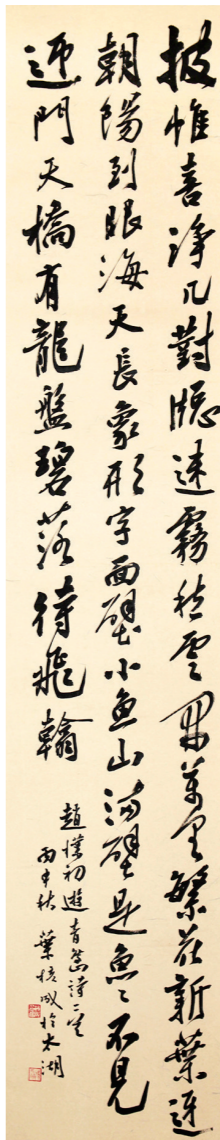 披帷喜淨几對窗迷霧積雲開萬里繁花新葉迎
朝陽到眼海天長象形字面壁小魚山滿壁是魚〻不見
迎門天橋有龍盤碧落待飛翰
趙樸初遊青島詩二首
丙申秋 葉培成於太湖